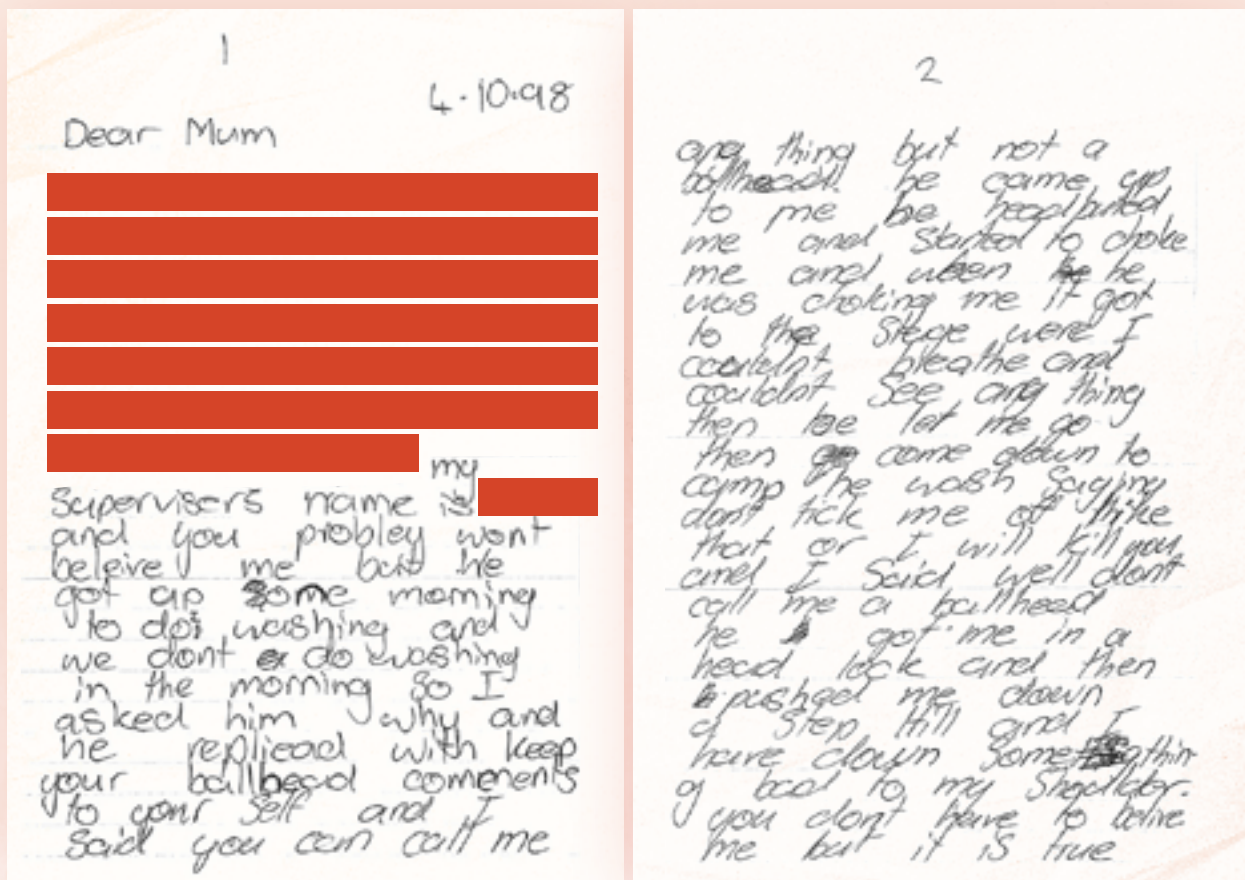 1
4.10.98
Dear Mum
my
Supervisers name is
and you probley wont
beleive me but he
got up some morning
to do washing and
we dont do washing
in the morning so I
asked him why and
he replicad with keep
your ballhead coments
to your self and I
Said you can call me
2
any thing but not a
ballhead. he came up
to me he headbutted
me and Started to choke
me and when he
was choking me it got
to the Stage were I
couldnt breathe and
couldnt See any thing
then he let me go
then come down to
camp the wash Saying
dont tick me of like
that or I will kill you
and I Said well dont
call me a ballhead
he got me in a
head lock and then
pushed me down
a Step Hill and I
have down Somethin
g bad to my Shoulder.
you dont have to belive
me but it is true